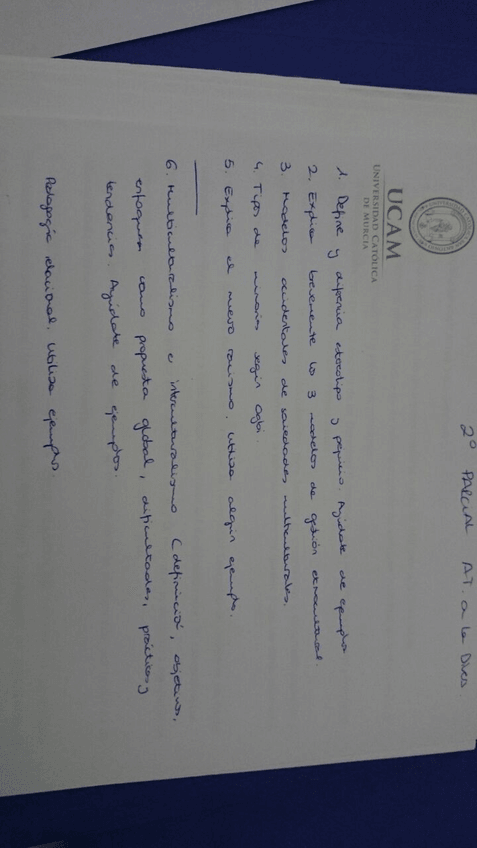 2º PARCIAL A.T. a la Divers.
UCAM
UNIVERSIDAD CATÓLICA
DE MURCIA
1. Define y diferencia estereotipo y prejuicio. Ayúdate de ejemplos
2. Explica brevemente los 3 modelos de gestión etnocultural.
3. Modelos occidentales de sociedades multiculturales.
4. Tipos de minorías según Ogbu.
5. Explica el nuevo racismo. Utiliza algún ejemplo.
6. Multiculturalismo e interculturalismo (definición, objetivos,
enfoques como propuesta global, dificultades, prácticas y
tendencias. Ayúdate de ejemplos.
Pedagogía relacional. Utiliza ejemplos.